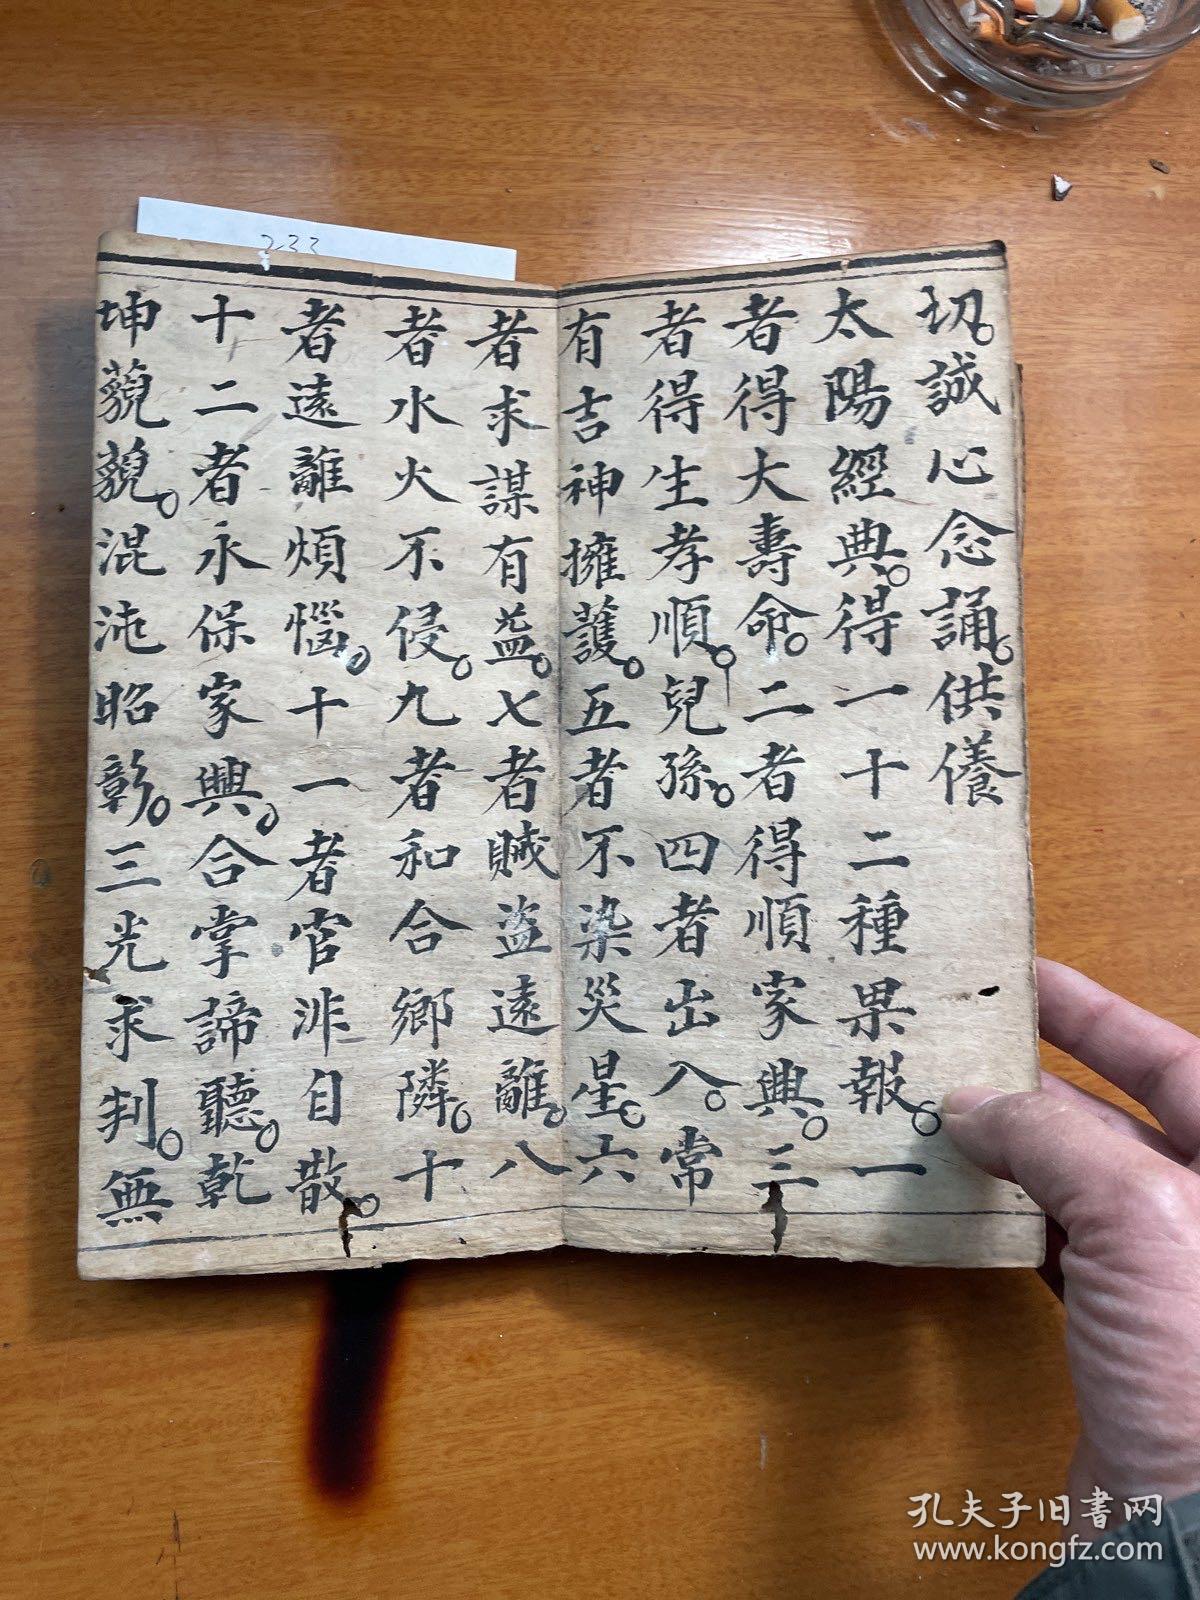 233
切。誠心念誦。供養
太陽經典。得一十二種果報。一
者得大壽命。二者得順家興。三
者得生孝順。兒孫。四者出入。常
有吉神擁護。五者不染災星。六
者求謀有益。七者賊盜遠離。八
者水火不侵。九者和合鄉隣。十
者遠離煩惱。十一者官非自散。
十二者永保家興。合掌諦聽。乾
坤藐藐。混沌昭彰。三光求判。無
孔夫子旧書网
www.kongfz.com